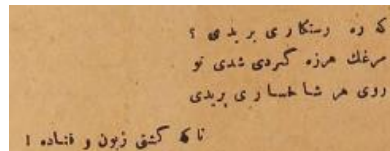 که ره رستکاری بریدی ؟
مرغك هرزه گردی شدی تو
روی هر شاخساری پریدی
تا که گشتی زبون و فتاده !